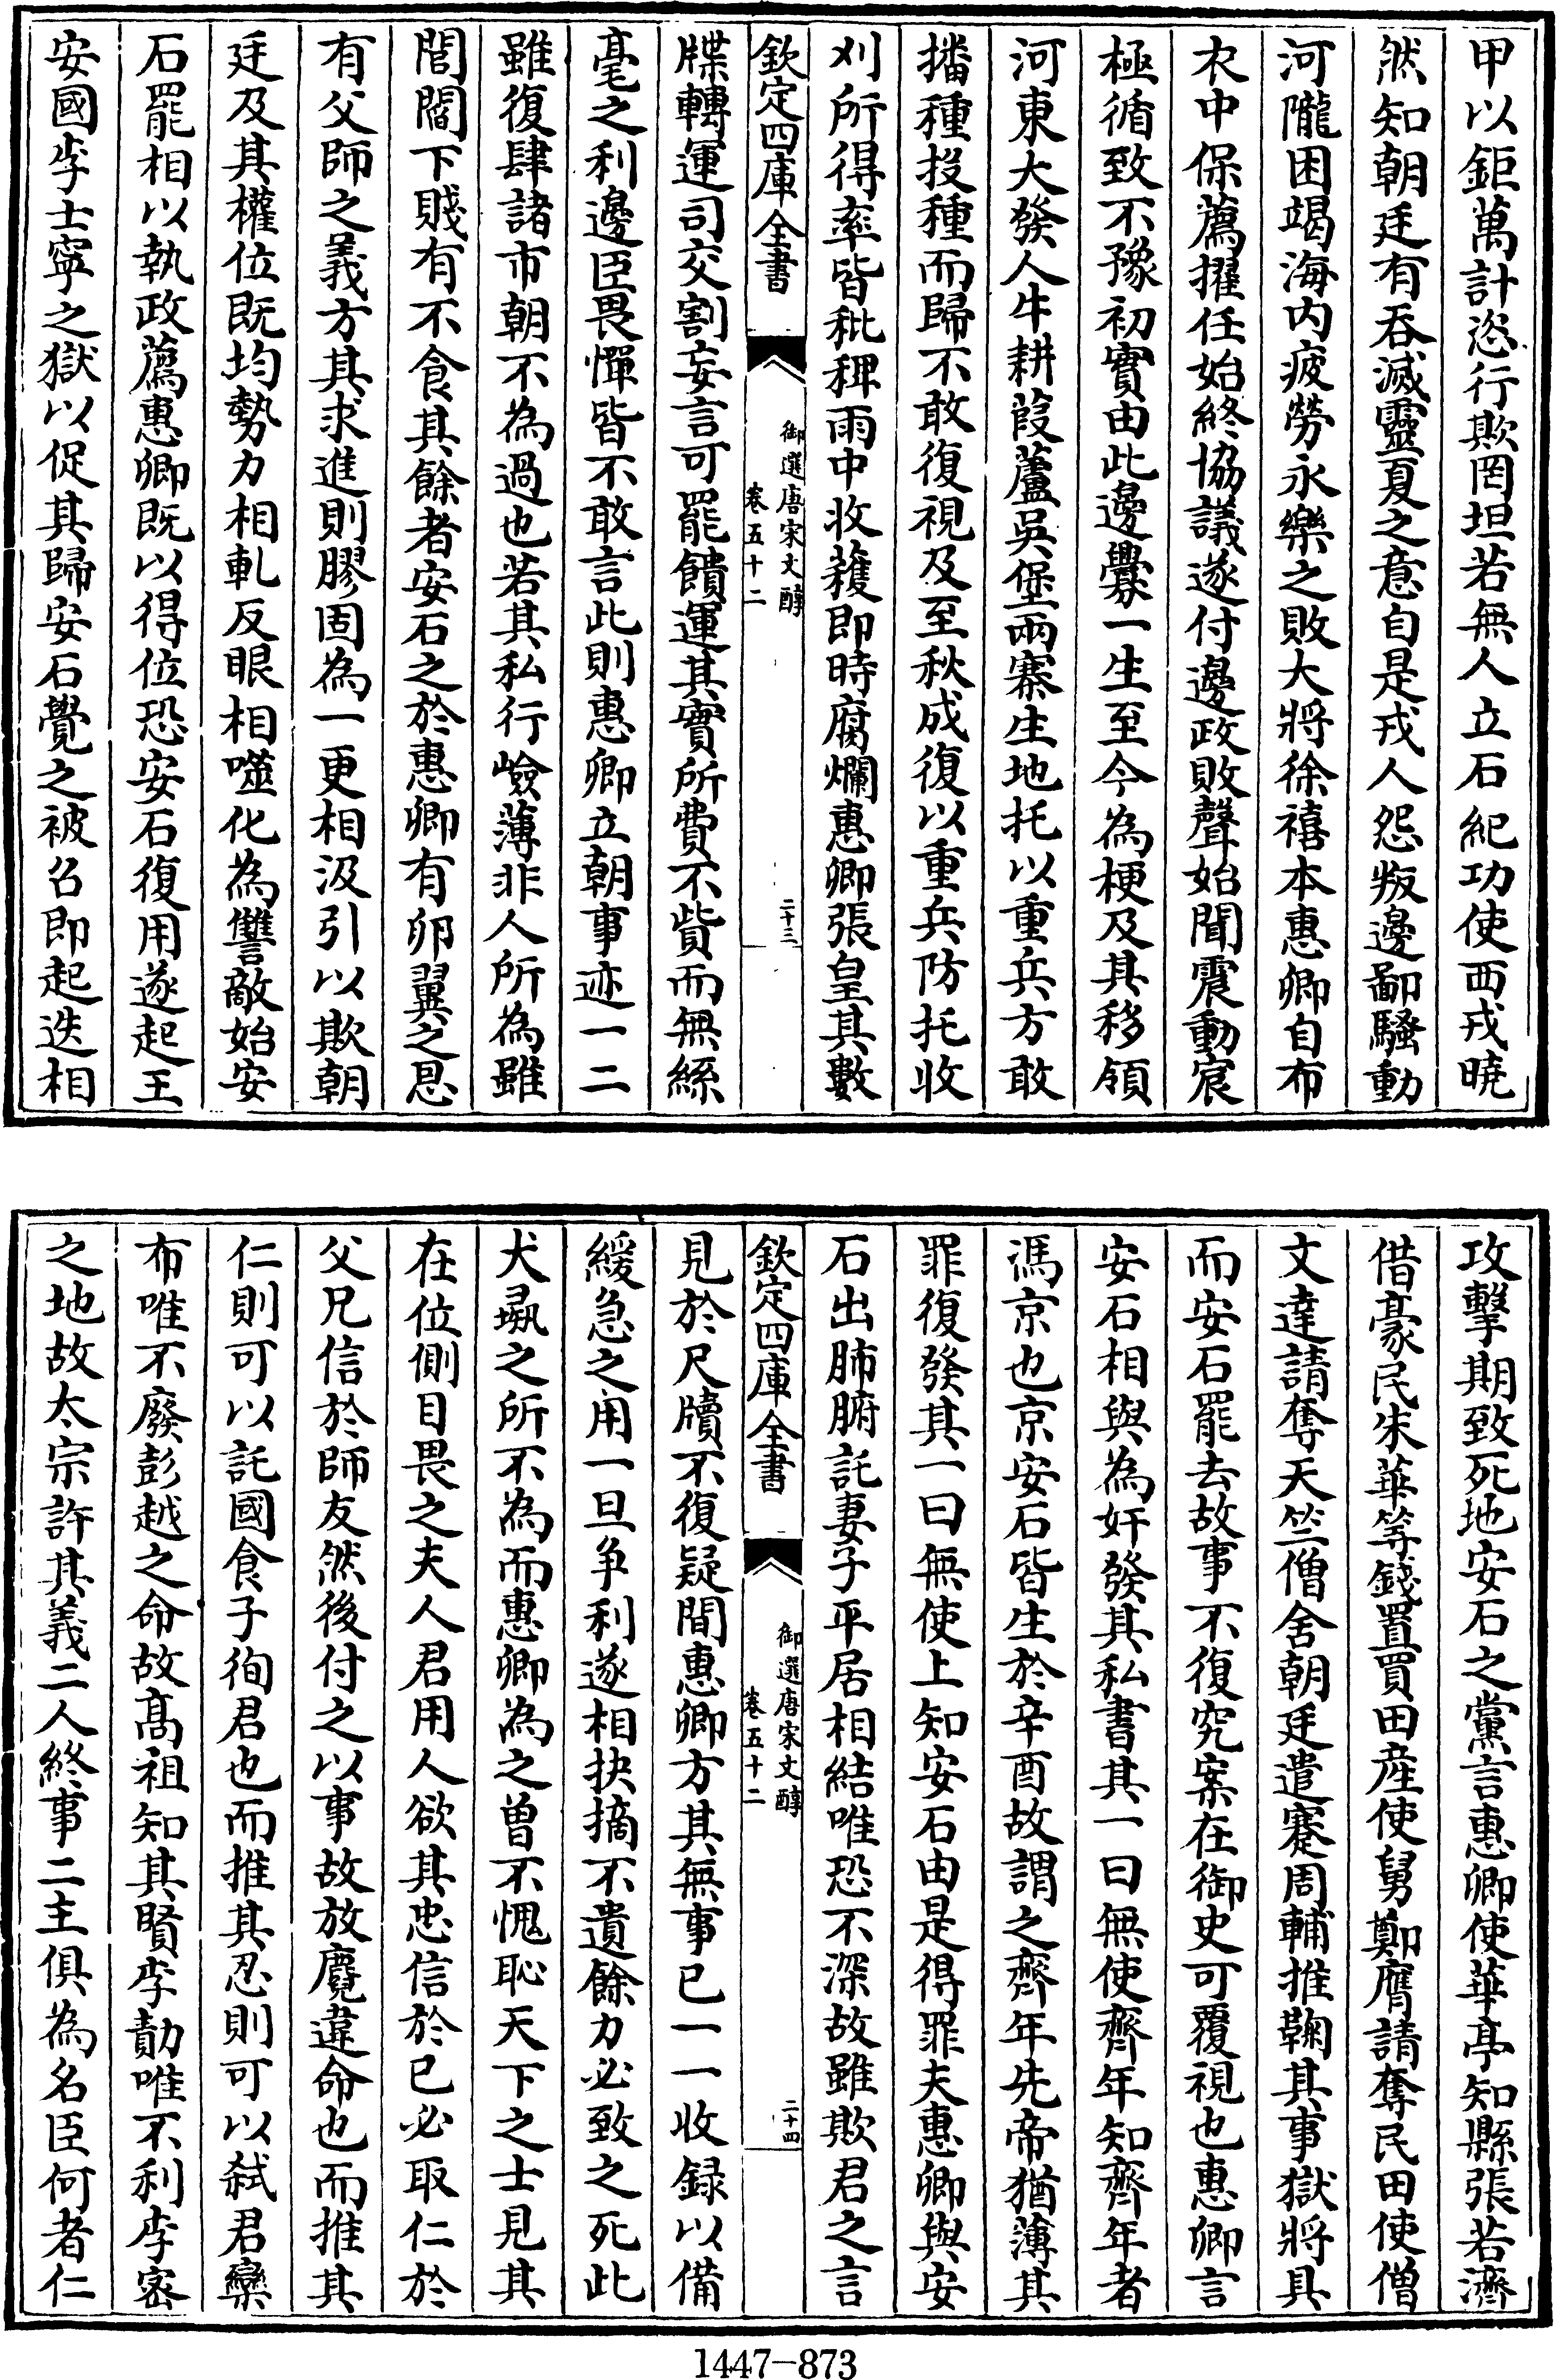 甲以鉅萬計恣行欺罔坦若無人立石紀功使西戎曉
然知朝廷有吞滅靈夏之意自是戎人怨叛邊鄙騷動
河隴困竭海内疲勞永樂之敗大將徐禧本惠卿自布
衣中保薦擢任始終協議遂付邊政敗聲始聞震動宸
極循致不豫初實由此邊釁一生至今為梗及其移領
河東大發人牛耕葭蘆吳堡兩寨生地托以重兵方敢
播種投種而歸不敢復視及至秋成復以重兵防托收
刈所得率皆秕稗雨中收穫即時腐爛惠卿張皇其數
欽定四庫全書
御選唐宋文醇
卷五十二
二十三
牒轉運司交割妄言可罷饋運其實所費不貲而無絲
毫之利邊臣畏憚皆不敢言此則惠卿立朝事迹一二
雖復肆諸市朝不為過也若其私行憸薄非人所為雖
閭閻下賤有不食其餘者安石之於惠卿有卵翼之恩
有父師之義方其求進則膠固為一更相汲引以欺朝
廷及其權位既均勢力相軋反眼相噬化為讐敵始安
石罷相以執政薦惠卿既以得位恐安石復用遂起王
安國李士寧之獄以促其歸安石覺之被召即起迭相
攻擊期致死地安石之黨言惠卿使華亭知縣張若濟
借豪民朱華等錢置買田産使舅鄭膺請奪民田使僧
文達請奪天竺僧舍朝廷遣蹇周輔推鞠其事獄將具
而安石罷去故事不復究案在御史可覆視也惠卿言
安石相與為奸發其私書其一曰無使齊年知齊年者
馮京也京安石皆生於辛酉故謂之齊年先帝猶薄其
罪復發其一曰無使上知安石由是得罪夫惠卿與安
石出肺腑託妻子平居相結唯恐不深故雖欺君之言
欽定四庫全書
御選唐宋文醇
卷五十二
二十四
見於尺牘不復疑間惠卿方其無事已一一收録以備
緩急之用一旦争利遂相抉摘不遺餘力必致之死此
犬彘之所不為而惠卿為之曾不愧恥天下之士見其
在位側目畏之夫人君用人欲其忠信於已必取仁於
父兄信於師友然後付之以事故放麑違命也而推其
仁則可以託國食子徇君也而推其忍則可以弑君欒
布唯不廢彭越之命故髙祖知其賢李勣唯不利李宻
之地故太宗許其義二人終事二主俱為名臣何者仁
1447-873